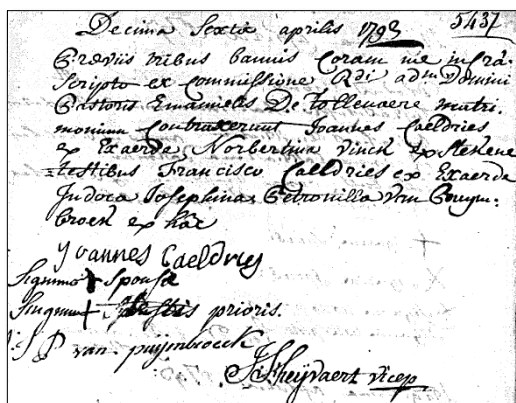 Decima Sexta aprilis 1793 5437
Præviis tribus bannis Coram me infrá=
Scripto ex Commissione Rdi admd Domini
Pastoris Emanuelis De Tollenaere matri=
monium Contraxerunt Joannes Caeldries
ex Exaerde Norbertina Vinck ex Stekene
testibus Francisco Caeldries ex Exaerde
Judoca Josephina Petronilla van Puym=
broeck ex hác
Yoannes Caeldries
Signum + Sponsæ
Signum + testis prioris.
J: P van puijmbroeck
Scheijvaert vicep